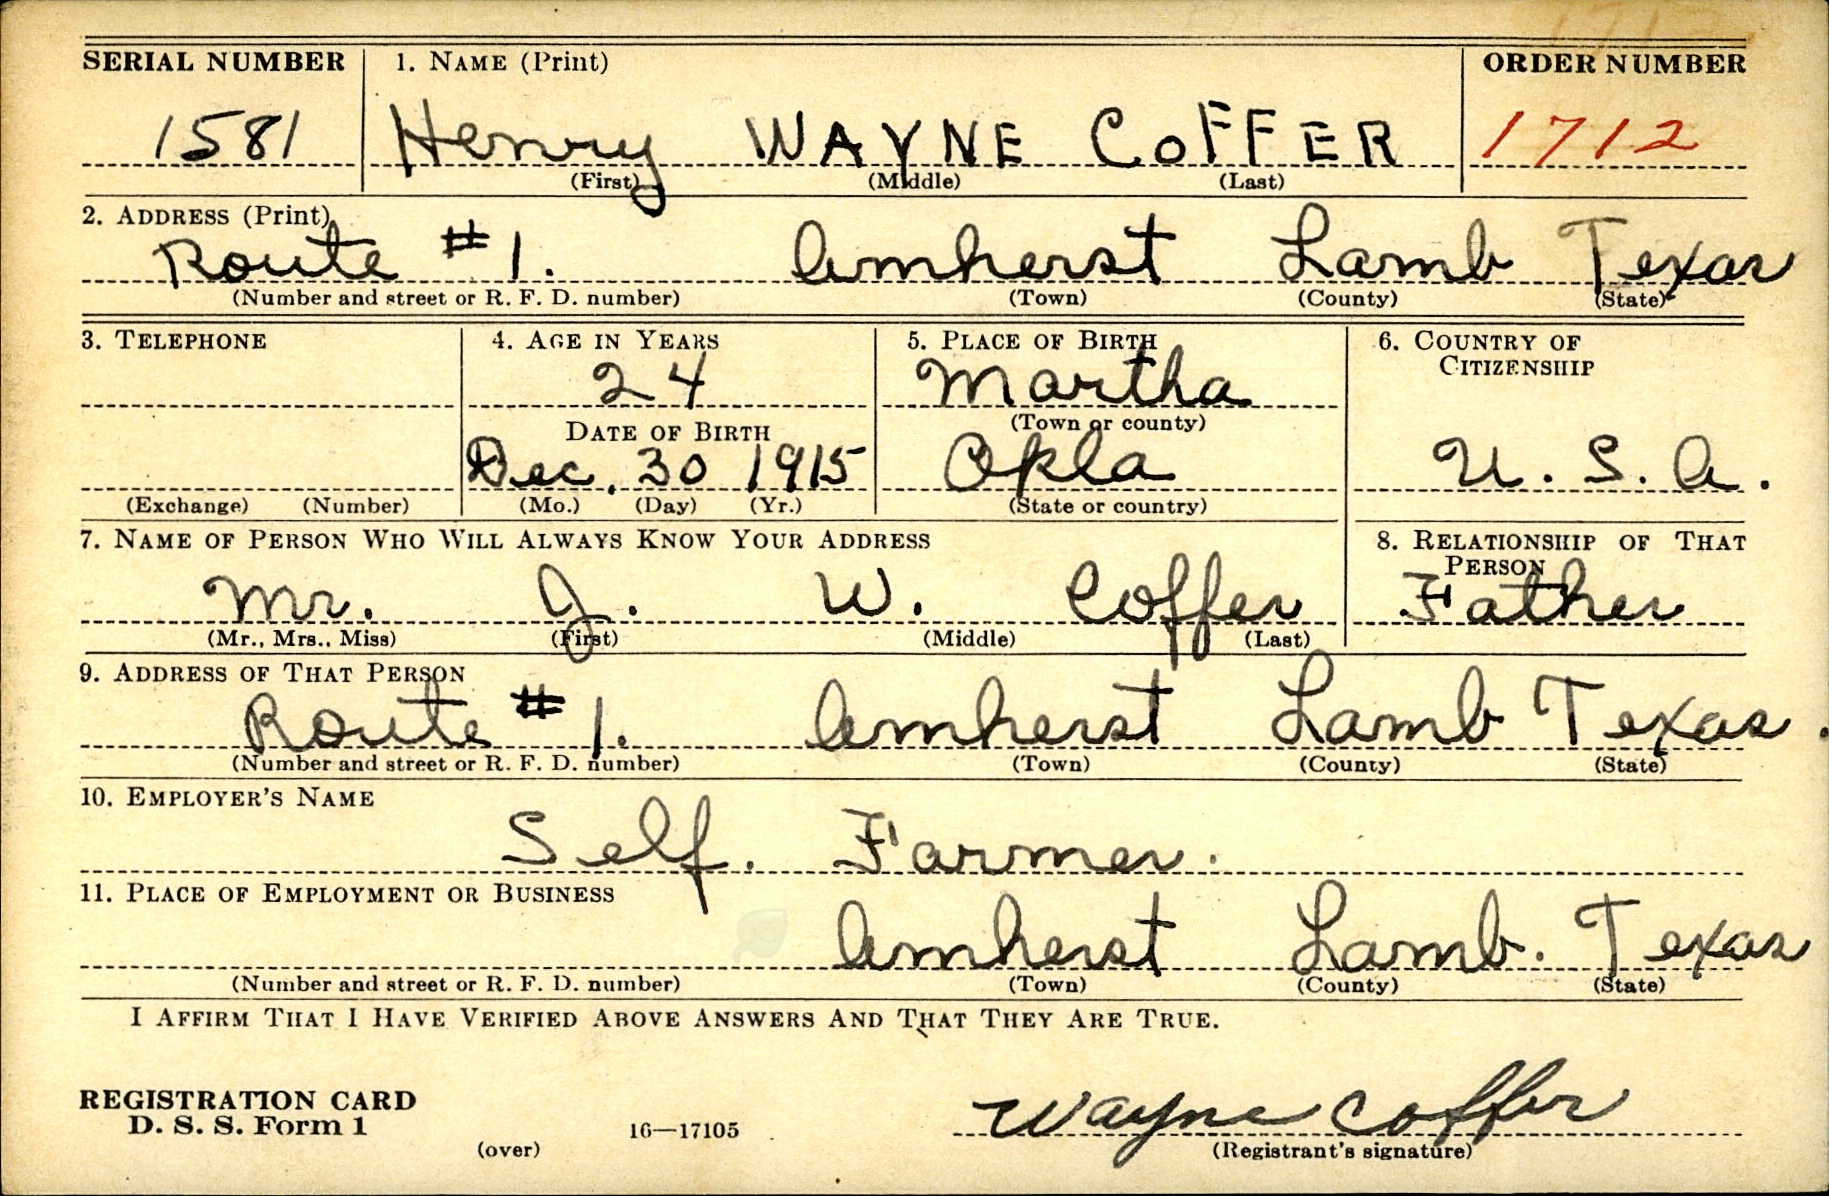 SERIAL NUMBER 1. NAME (Print) ORDER NUMBER
1581 Henry WAYNE COFFER 1712
(First) (Middle) (Last)
2. ADDRESS (Print)
Route #1. Amherst Lamb Texas
(Number and street or R. F. D. number) (Town) (County) (State)
3. TELEPHONE 4. AGE IN YEARS 5. PLACE OF BIRTH 6. COUNTRY OF CITIZENSHIP
24 Martha
DATE OF BIRTH (Town or county)
Dec. 30 1915 Okla U. S. A.
(Exchange) (Number) (Mo.) (Day) (Yr.) (State or country)
7. NAME OF PERSON WHO WILL ALWAYS KNOW YOUR ADDRESS 8. RELATIONSHIP OF THAT PERSON
Mr. J. W. Coffer Father
(Mr., Mrs., Miss) (First) (Middle) (Last)
9. ADDRESS OF THAT PERSON
Route #1. Amherst Lamb Texas.
(Number and street or R. F. D. number) (Town) (County) (State)
10. EMPLOYER'S NAME
Self. Farmer.
11. PLACE OF EMPLOYMENT OR BUSINESS
Amherst Lamb. Texas
(Number and street or R. F. D. number) (Town) (County) (State)
I AFFIRM THAT I HAVE VERIFIED ABOVE ANSWERS AND THAT THEY ARE TRUE.
REGISTRATION CARD
D. S. S. Form 1 16—17105 Wayne Coffer
(over) (Registrant's signature)